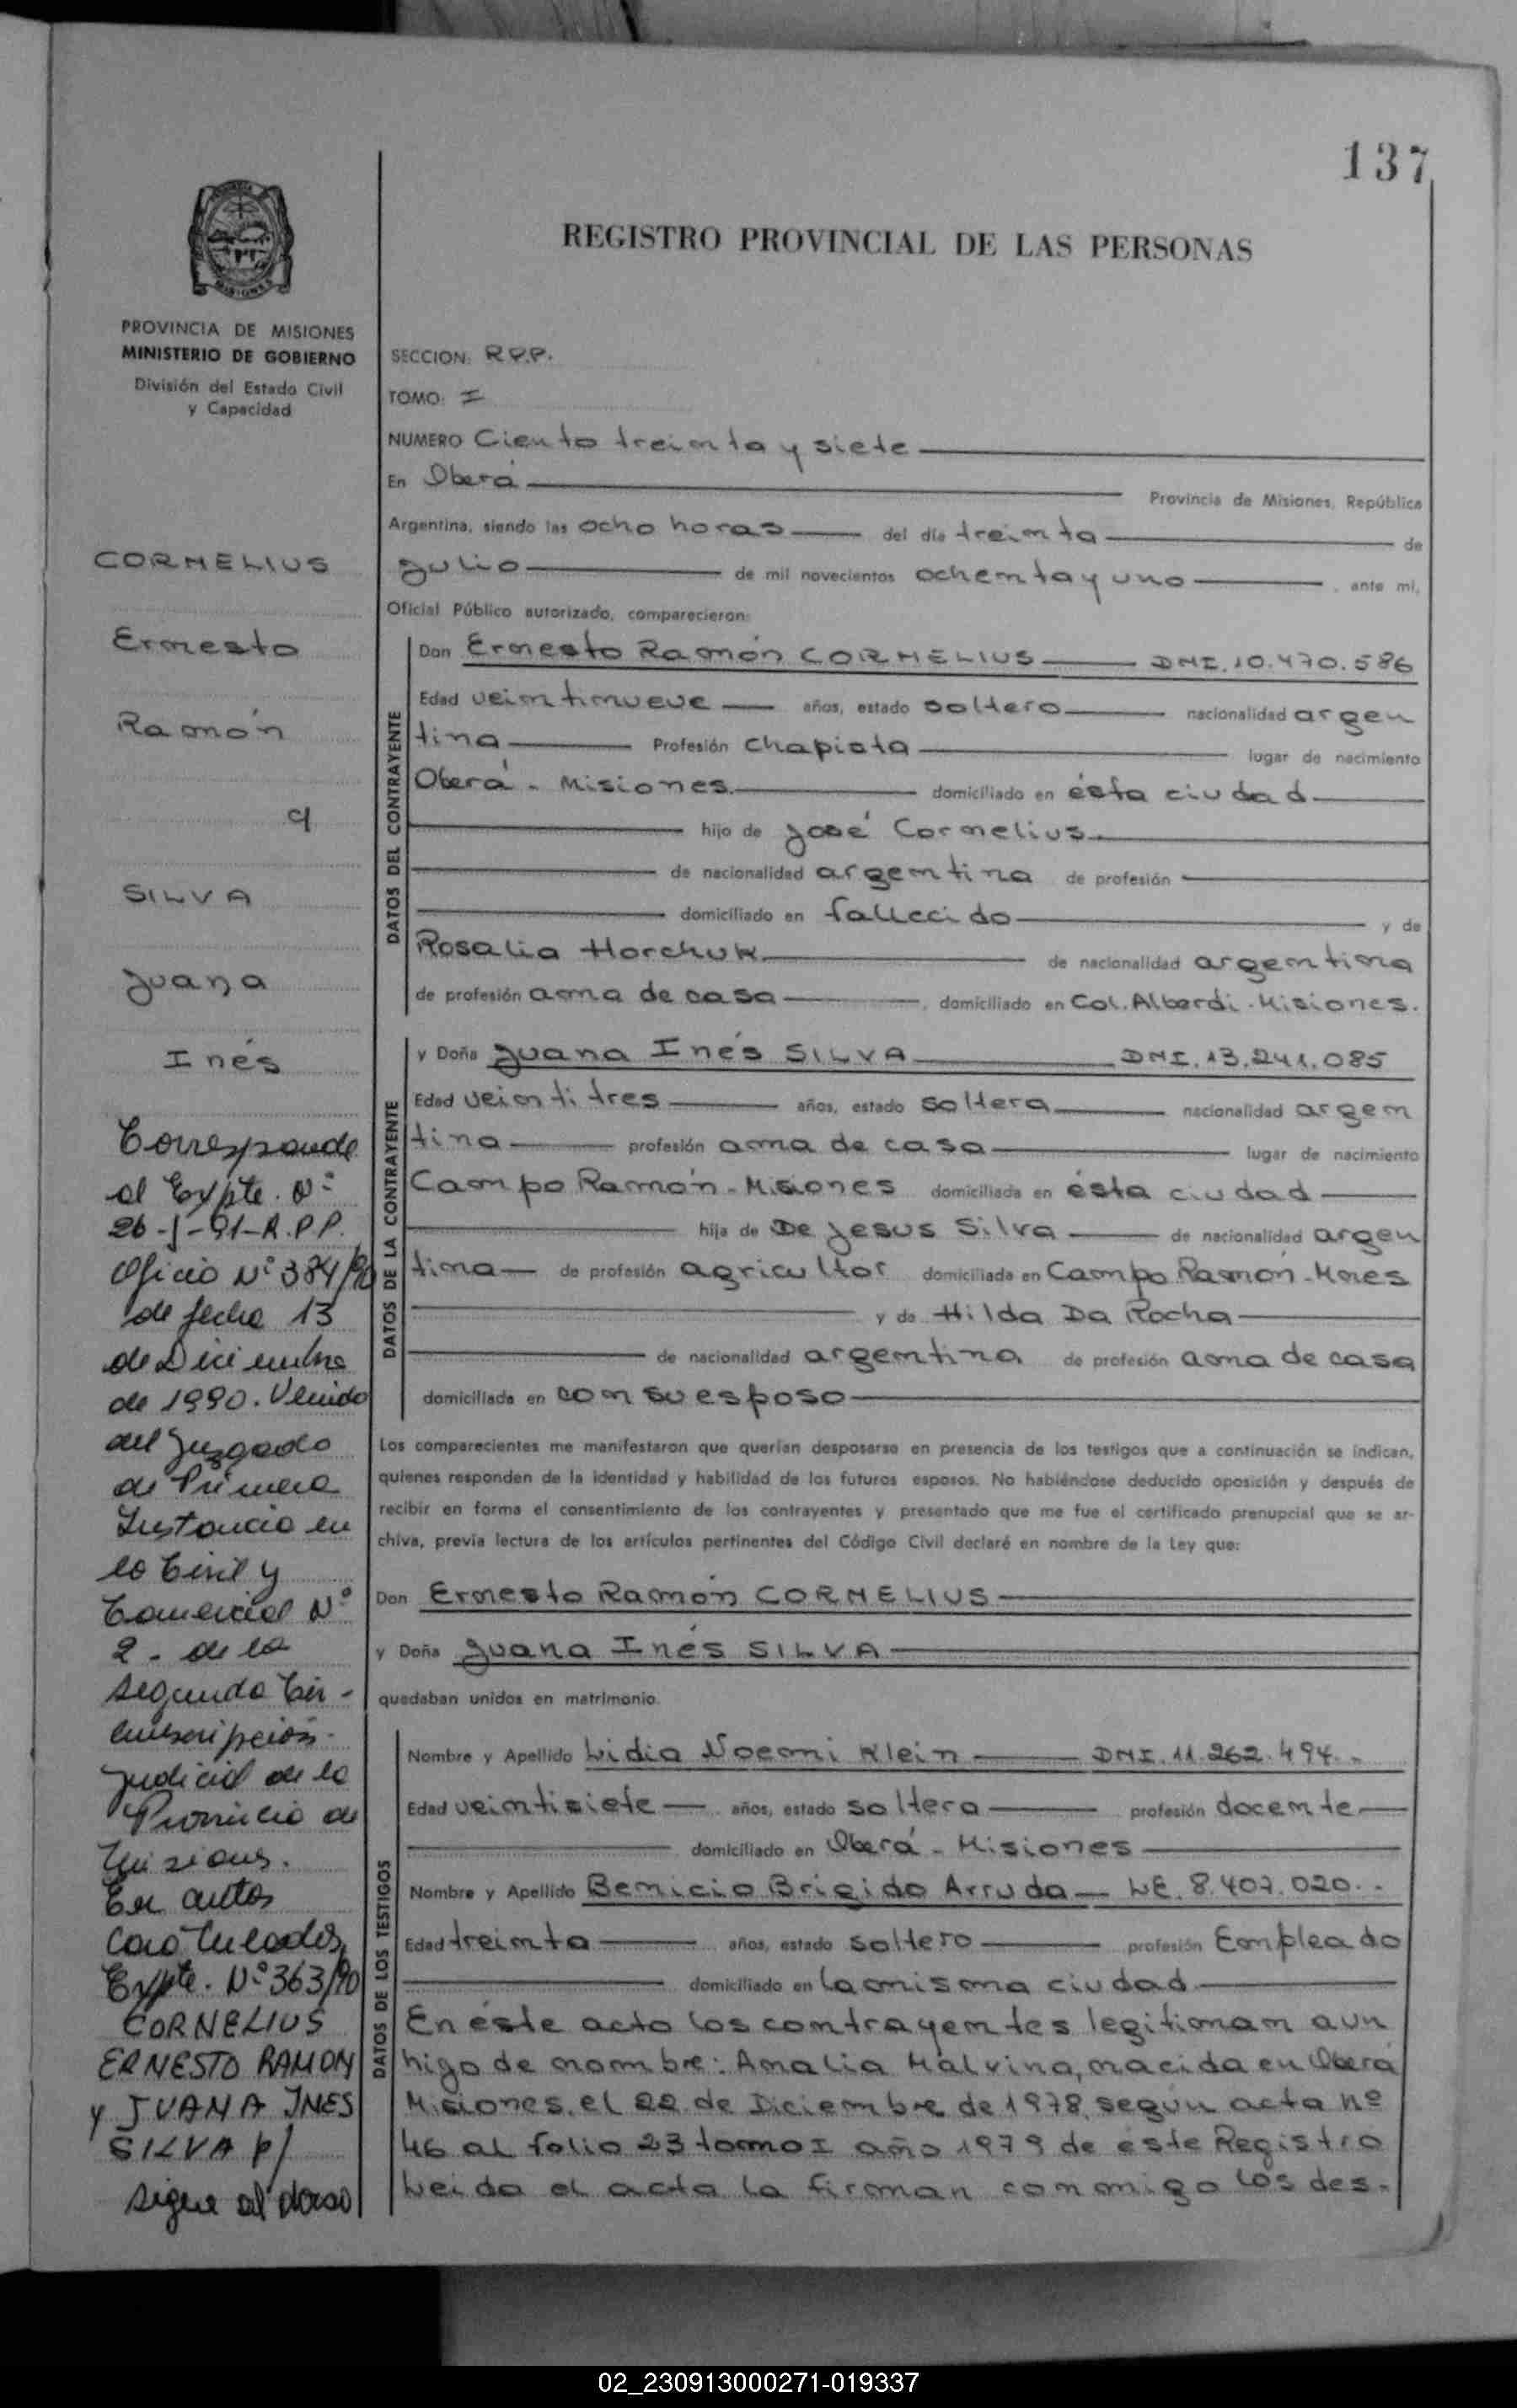 137
REGISTRO PROVINCIAL DE LAS PERSONAS
MISIONES
PROVINCIA DE MISIONES
MINISTERIO DE GOBIERNO
División del Estado Civil
y Capacidad
SECCION: R.P.P.
TOMO: I
NUMERO Ciento treinta y siete
En Oberá Provincia de Misiones, República
Argentina, siendo las ocho horas del día treinta de
Julio de mil novecientos ochenta y uno, ante mí,
Oficial Público autorizado, comparecieron:
CORNELIUS
Ernesto
Ramón
q
SILVA
Juana
Inés
Corresponde
al Expte. Nº
26-J-91-R.P.P.
Oficio Nº 384/90
de fecha 13
de Diciembre
de 1990. Venido
del Juzgado
de Primera
Instancia en
lo Civil y
Comercial Nº
2 - de la
Segunda Cir-
cunscripción
Judicial de la
Provincia de
Misiones.
En autos
Caratulados,
Expte. Nº 363/90
CORNELIUS
ERNESTO RAMON
y JUANA INES
SILVA p/
sigue al dorso
DATOS DEL CONTRAYENTE
Don Ernesto Ramón CORNELIUS DNI. 10.470.586
Edad veintinueve años, estado soltero nacionalidad argen
tina Profesión chapista lugar de nacimiento
Oberá - Misiones domiciliado en ésta ciudad
hijo de José Cornelius.
de nacionalidad argentina de profesión
domiciliado en fallecido y de
Rosalia Horchuk de nacionalidad argentina
de profesión ama de casa, domiciliado en Col. Alberdi - Misiones.
DATOS DE LA CONTRAYENTE
y Doña Juana Inés SILVA DNI. 13.241.085
Edad veintitres años, estado soltera nacionalidad argen
tina profesión ama de casa lugar de nacimiento
Campo Ramón - Misiones domiciliada en ésta ciudad
hija de De Jesus Silva de nacionalidad argen
tina de profesión agricultor domiciliada en Campo Ramón - Mnes
y de Hilda Da Rocha
de nacionalidad argentina de profesión ama de casa
domiciliada en con su esposo
Los comparecientes me manifestaron que querían desposarse en presencia de los testigos que a continuación se indican,
quienes responden de la identidad y habilidad de los futuros esposos. No habiéndose deducido oposición y después de
recibir en forma el consentimiento de los contrayentes y presentado que me fue el certificado prenupcial que se ar-
chiva, previa lectura de los artículos pertinentes del Código Civil declaré en nombre de la Ley que:
Don Ernesto Ramón CORNELIUS
y Doña Juana Inés SILVA
quedaban unidos en matrimonio.
DATOS DE LOS TESTIGOS
Nombre y Apellido Lidia Noemi Klein DNI. 11.262.494.-
Edad veintisiete años, estado soltera profesión docente
domiciliado en Oberá - Misiones
Nombre y Apellido Benicio Brigido Arruda LE. 8.407.020.-
Edad treinta años, estado soltero profesión Empleado
domiciliado en la misma ciudad
En éste acto los contrayentes legitiman a un
higo de nombre: Amalia Malvina, nacida en Oberá
Misiones, el 22 de Diciembre de 1978, según acta nº
46 al folio 23 tomo I año 1979 de éste Registro
Leida el acta la firman conmigo los des-
02_230913000271-019337